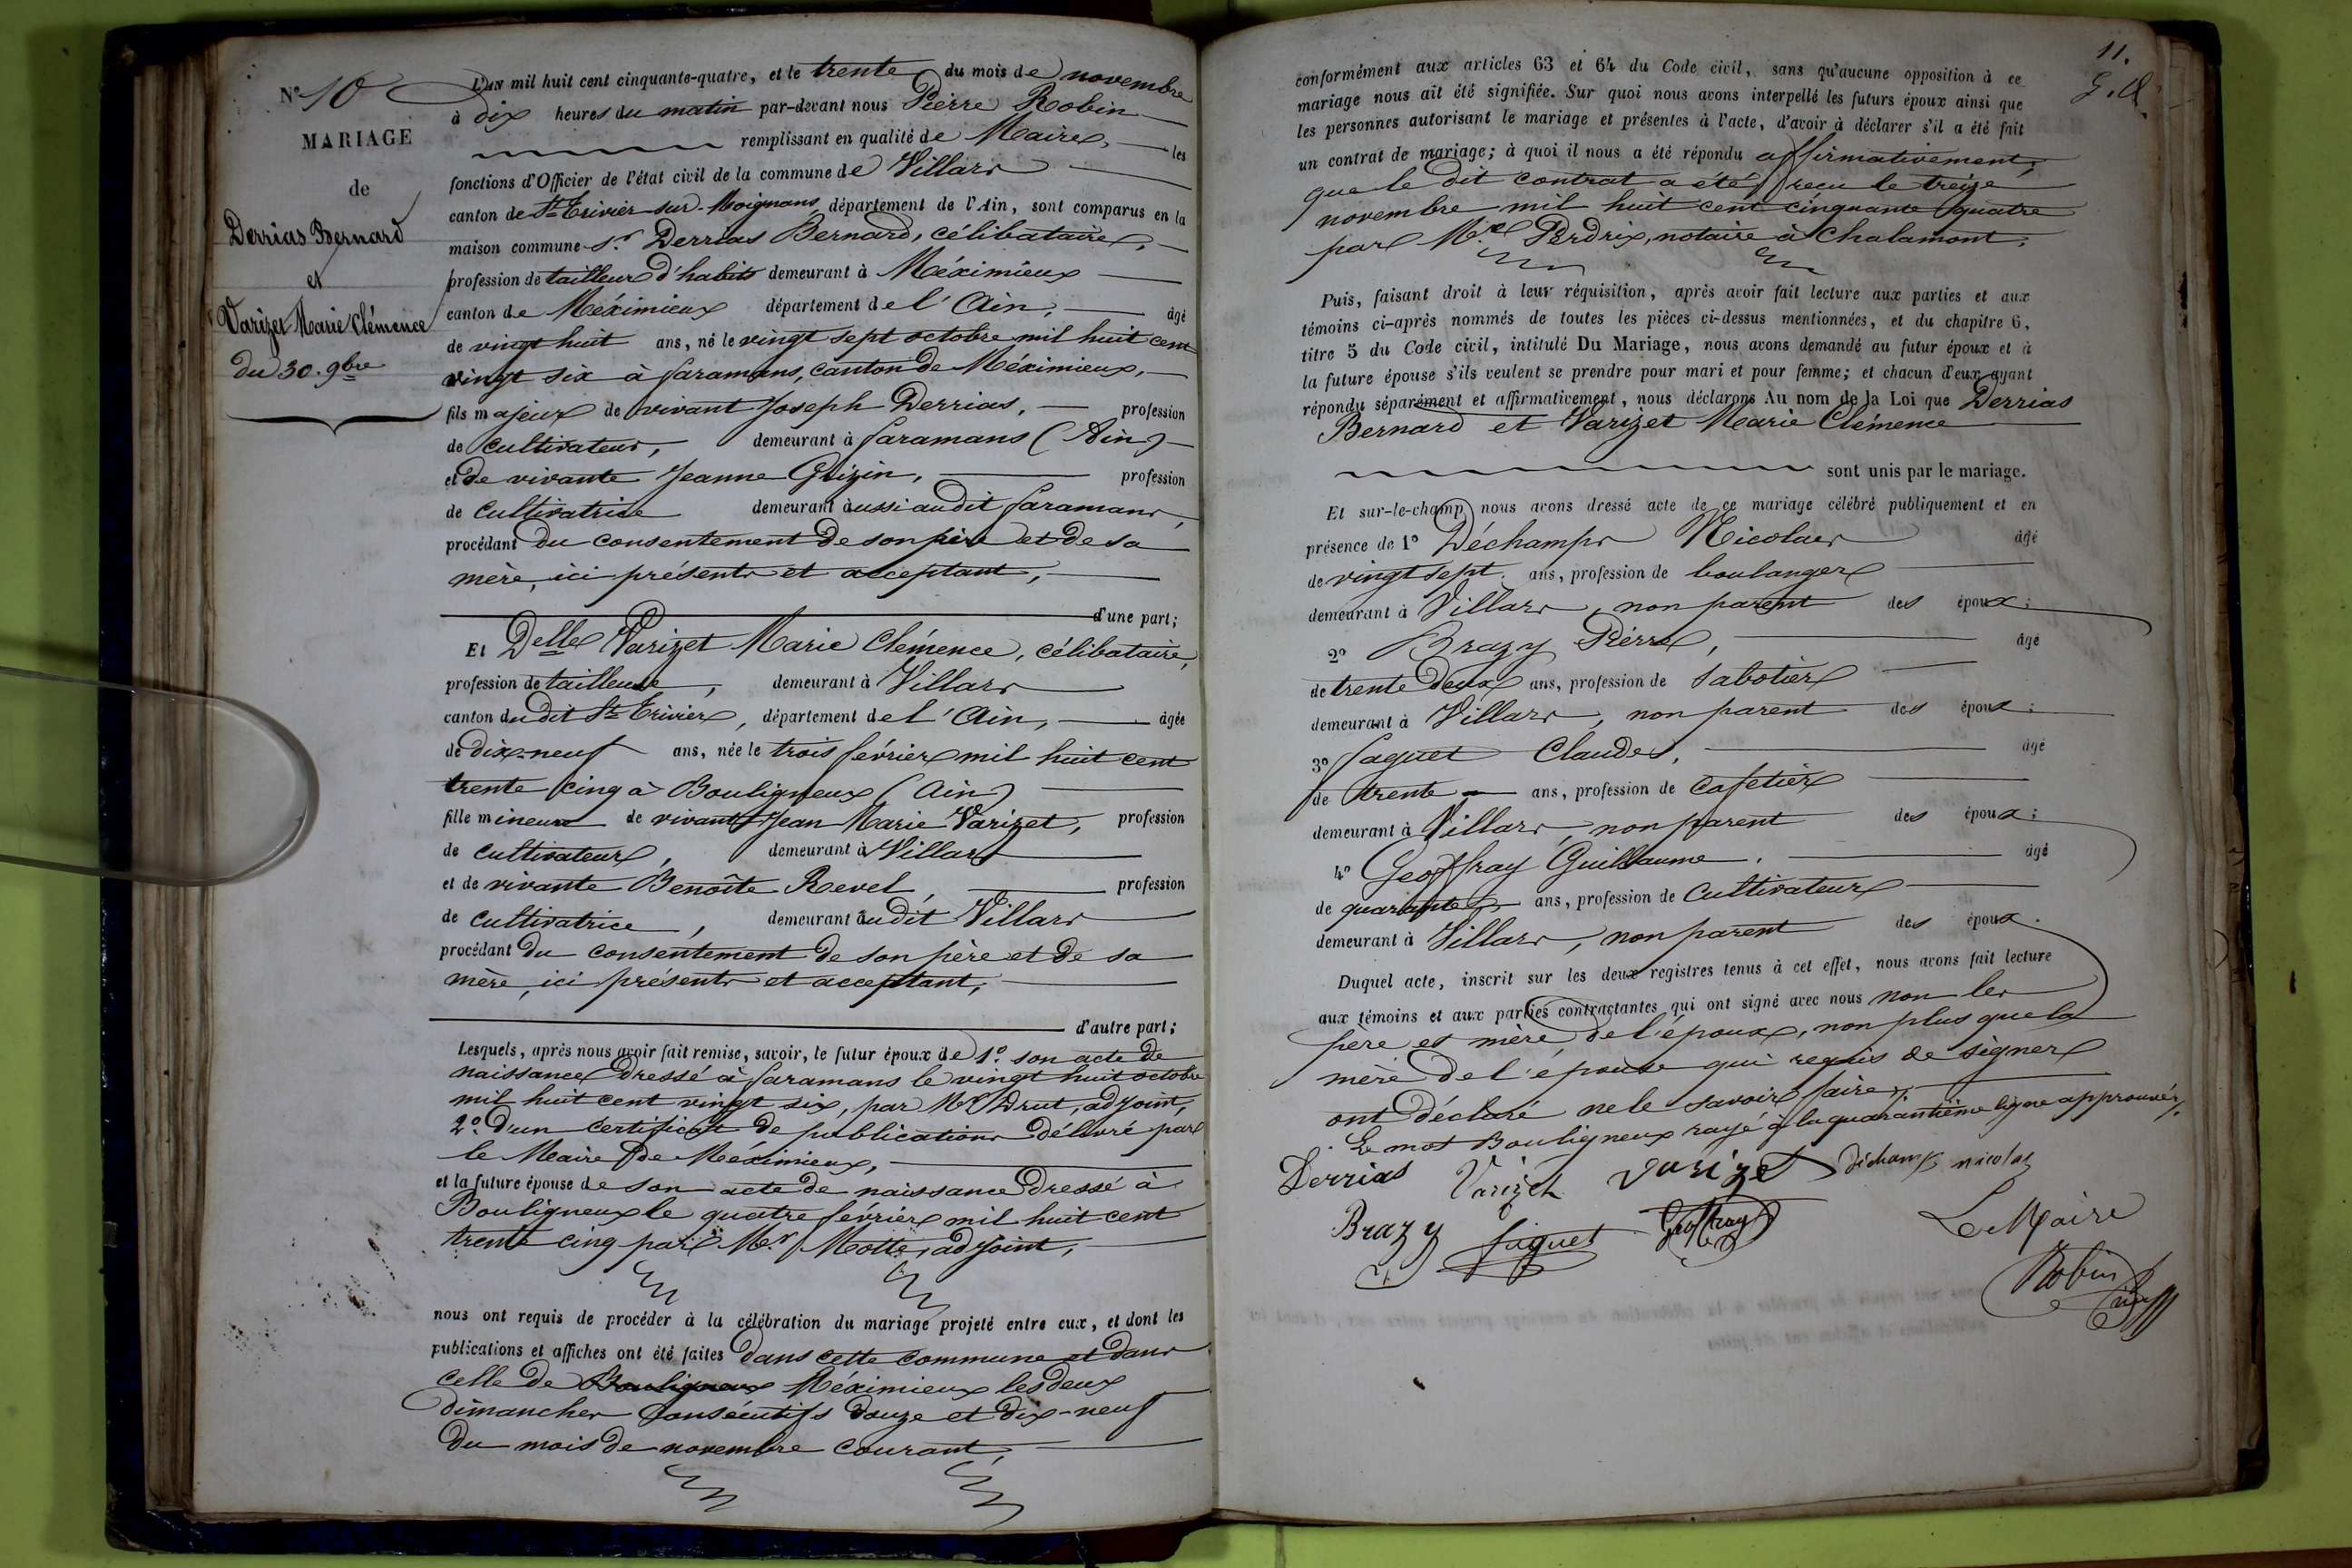 N° 10
MARIAGE
de
Derrias Bernard
et
Varizet Marie Clémence
du 30. 9bre
L'an mil huit cent cinquante-quatre, et le trente du mois de novembre
à dix heures du matin par-devant nous Pierre Robin
remplissant en qualité de Maire, les
fonctions d'Officier de l'état civil de la commune de Villars
canton de St Trivier sur Moignans, département de l'Ain, sont comparus en la
maison commune Sr Derrias Bernard, célibataire,
profession de tailleur d'habits demeurant à Méximieux
canton de Méximieux département de l'Ain, âgé
de vingt huit ans, né le vingt sept octobre mil huit cent
vingt six à faramans, canton de Méximieux,
fils majeur de vivant Joseph Derrias, profession
de cultivateur, demeurant à faramans (Ain)
et de vivante Jeanne Guizin, profession
de cultivatrice demeurant aussi audit faramans,
procédant du consentement de son père et de sa
mère, ici présents et acceptant,
d'une part;
Et Delle Varizet Marie Clémence, célibataire,
profession de tailleuse, demeurant à Villars
canton dudit St Trivier, département de l'Ain, âgée
de dix-neuf ans, née le trois février mil huit cent
trente cinq à Bouligneux (Ain)
fille mineure de vivant Jean Marie Varizet, profession
de cultivateur, demeurant à Villars
et de vivante Benoîte Revel, profession
de cultivatrice, demeurant audit Villars
procédant du consentement de son père et de sa
mère, ici présents et acceptant,
d'autre part;
Lesquels, après nous avoir fait remise, savoir, le futur époux de 1° son acte de
naissance dressé à faramans le vingt huit octobre
mil huit cent vingt six, par Mr Drut, adjoint,
2° d'un certificat de publications délivré par
le Maire de Méximieux,
et la future épouse de son acte de naissance dressé à
Bouligneux le quatre février mil huit cent
trente cinq par Mr Motte, adjoint,
nous ont requis de procéder à la célébration du mariage projeté entre eux, et dont les
publications et affiches ont été faites dans cette commune et dans
celle de Bouligneux Méximieux les deux
dimanches consécutifs douze et dix-neuf
du mois de novembre courant,
11.
conformément aux articles 63 et 64 du Code civil, sans qu'aucune opposition à ce
mariage nous ait été signifiée. Sur quoi nous avons interpellé les futurs époux ainsi que
les personnes autorisant le mariage et présentes à l'acte, d'avoir à déclarer s'il a été fait
un contrat de mariage; à quoi il nous a été répondu affirmativement,
que le dit contrat a été reçu le treize
novembre mil huit cent cinquante quatre
par Me Perdrix, notaire à Chalamont;
Puis, faisant droit à leur réquisition, après avoir fait lecture aux parties et aux
témoins ci-après nommés de toutes les pièces ci-dessus mentionnées, et du chapitre 6,
titre 5 du Code civil, intitulé Du Mariage, nous avons demandé au futur époux et à
la future épouse s'ils veulent se prendre pour mari et pour femme; et chacun d'eux ayant
répondu séparément et affirmativement, nous déclarons Au nom de la Loi que Derrias
Bernard et Varizet Marie Clémence
sont unis par le mariage.
Et sur-le-champ nous avons dressé acte de ce mariage célébré publiquement et en
présence de 1° Déchamps Nicolas âgé
de vingt sept. ans, profession de boulanger
demeurant à Villars, non parent des époux;
2° Brazy Pierre, âgé
de trente deux ans, profession de sabotier
demeurant à Villars, non parent des époux;
3° faguet Claude, âgé
de trente ans, profession de Cafetier
demeurant à Villars, non parent des époux;
4° Geoffray Guillaume, âgé
de quarante ans, profession de cultivateur
demeurant à Villars, non parent des époux.
Duquel acte, inscrit sur les deux registres tenus à cet effet, nous avons fait lecture
aux témoins et aux parties contractantes qui ont signé avec nous non les
père et mère de l'époux, non plus que la
mère de l'épouse qui requis de signer
ont déclaré ne le savoir faire,
Le mot Bouligneux rayé à la quarantième ligne approuvé,
Derrias Varizet Varizet déchamps nicolas
Brazy faguet Geoffray Le Maire
Robin